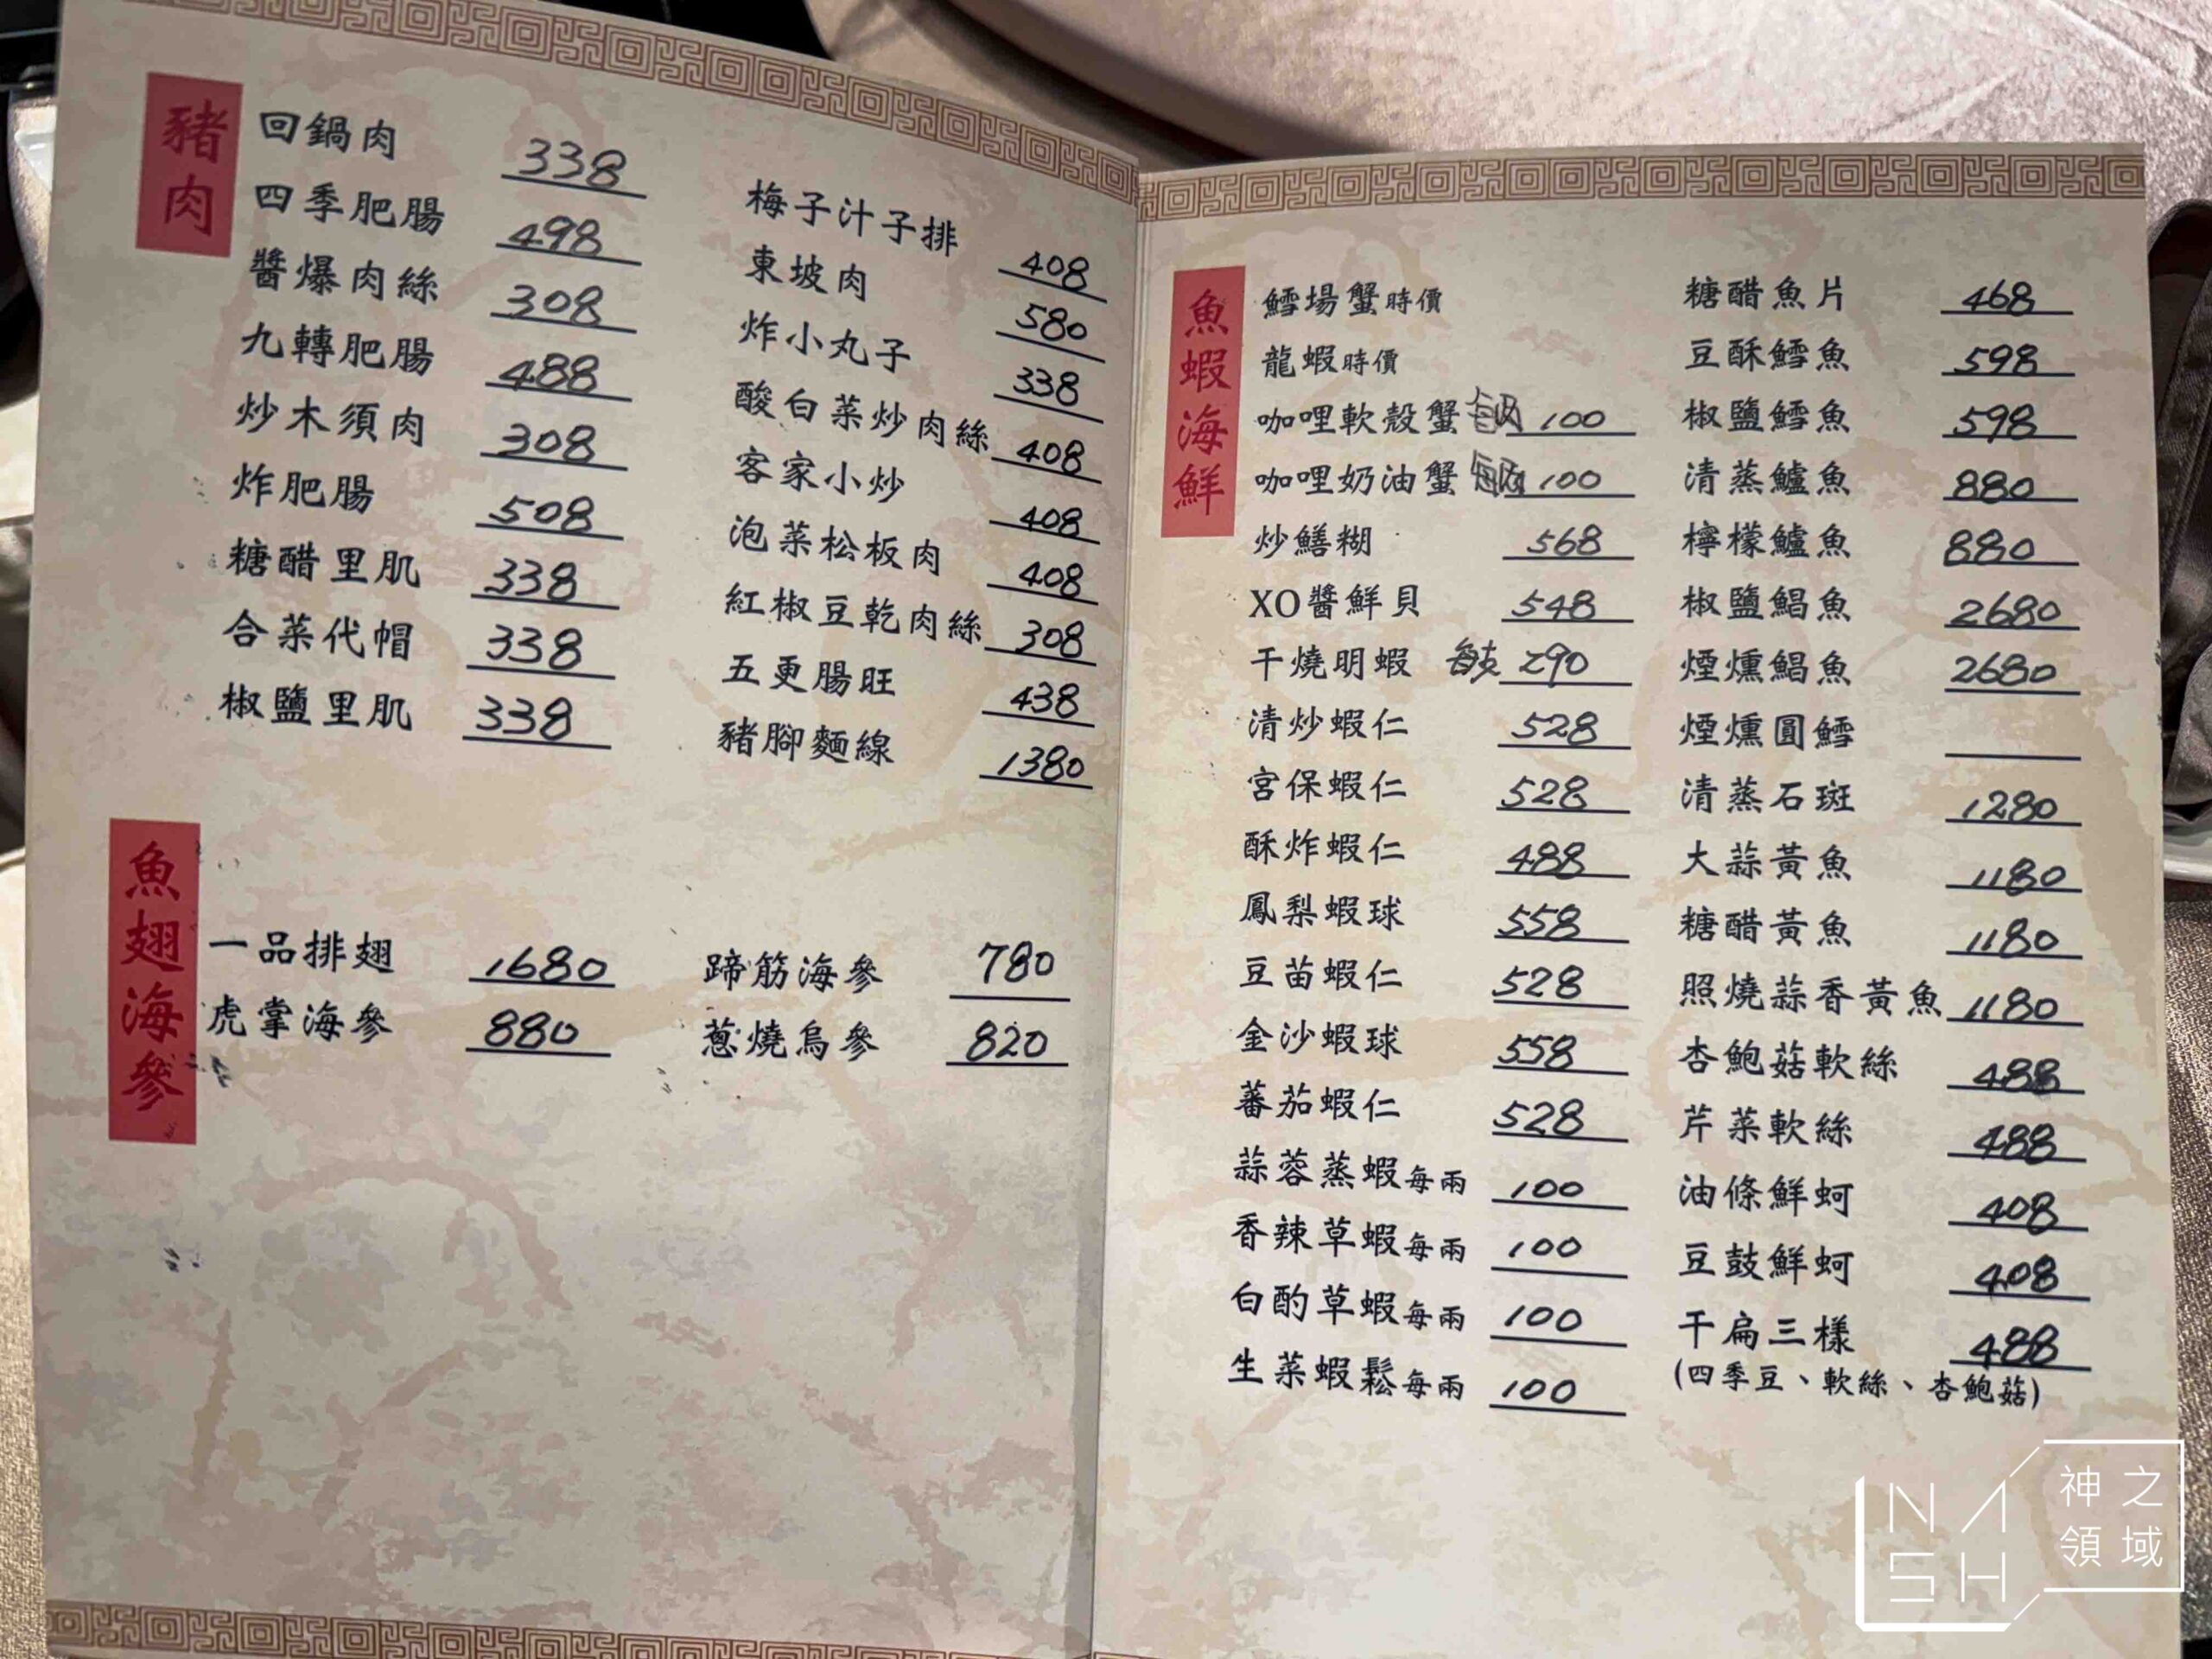 豬肉
回鍋肉 338
四季肥腸 498
醬爆肉絲 308
九轉肥腸 488
炒木須肉 308
炸肥腸 508
糖醋里肌 338
合菜代帽 338
椒鹽里肌 338
梅子汁子排 408
東坡肉 580
炸小丸子 338
酸白菜炒肉絲 408
客家小炒 408
泡菜松板肉 408
紅椒豆乾肉絲 308
五更腸旺 438
豬腳麵線 1380
魚翅海參
一品排翅 1680
虎掌海參 880
蹄筋海參 780
蔥燒烏參 820
魚蝦海鮮
鱈場蟹時價
龍蝦時價
咖哩軟殼蟹 100
咖哩奶油蟹 100
炒鱔糊 568
XO醬鮮貝 548
干燒明蝦 每支 290
清炒蝦仁 528
宮保蝦仁 528
酥炸蝦仁 488
鳳梨蝦球 558
豆苗蝦仁 528
金沙蝦球 558
蕃茄蝦仁 528
蒜蓉蒸蝦每兩 100
香辣草蝦每兩 100
白酌草蝦每兩 100
生菜蝦鬆每兩 100
糖醋魚片 468
豆酥鱈魚 598
椒鹽鱈魚 598
清蒸鱸魚 880
檸檬鱸魚 880
椒鹽鯧魚 2680
煙燻鯧魚 2680
煙燻圓鱈
清蒸石斑 1280
大蒜黃魚 1180
糖醋黃魚 1180
照燒蒜香黃魚 1180
杏鮑菇軟絲 488
芹菜軟絲 488
油條鮮蚵 408
豆鼓鮮蚵 408
干扁三樣 488
(四季豆、軟絲、杏鮑菇)
NASH
神之
領域